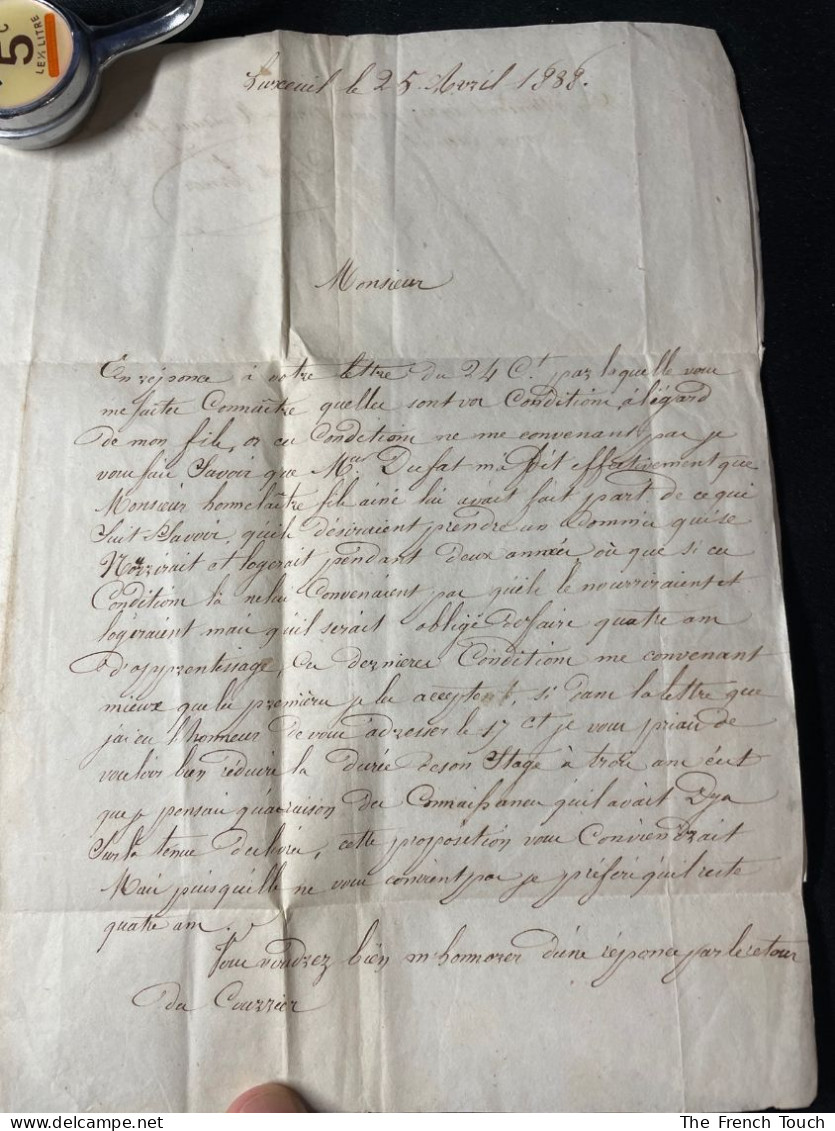 5 c
LE ½ LITRE
Luxeuil le 25 Avril 1838.
Monsieur
En réponce à votre lettre du 24 Ct. par laquelle vous
me faites Connaître quelles sont vos Conditions, à légard
de mon fils, or ces Conditions ne me convenant pas je
vous fais Savoir que Mr. Dufat m'a dit effectivement que
Monsieur homelaître fils ainé lui avait fait part de ce qui
Suit Savoir, qu'ils désiraient prendre un Commis qui se
Nourrirait et logerait pendant deux années, où que si ces
Conditions là ne lui Convenaient pas qu'ils le nourriraient et
logeraient mais qu'il serait obligé de faire quatre ans
d'apprentissage, Ces dernieres Conditions me convenant
mieux que les premières je les acceptent, si dans la lettre que
j'ai eu l'honneur de vous adresser le 17 Ct je vous priais de
vouloir bien réduire la durée de son Stage à trois ans c'est
que je pensais qu'à raison des Connaissances qu'il avait Dja
Sur la tenue des livres, cette proposition vous Conviendrait
Mais puisqu'elle ne vous convient pas je préfère qu'il reste
quatre ans.
Vous voudrez bien m'honnorer d'une réponce par le retour
du Courrier
The French Touch